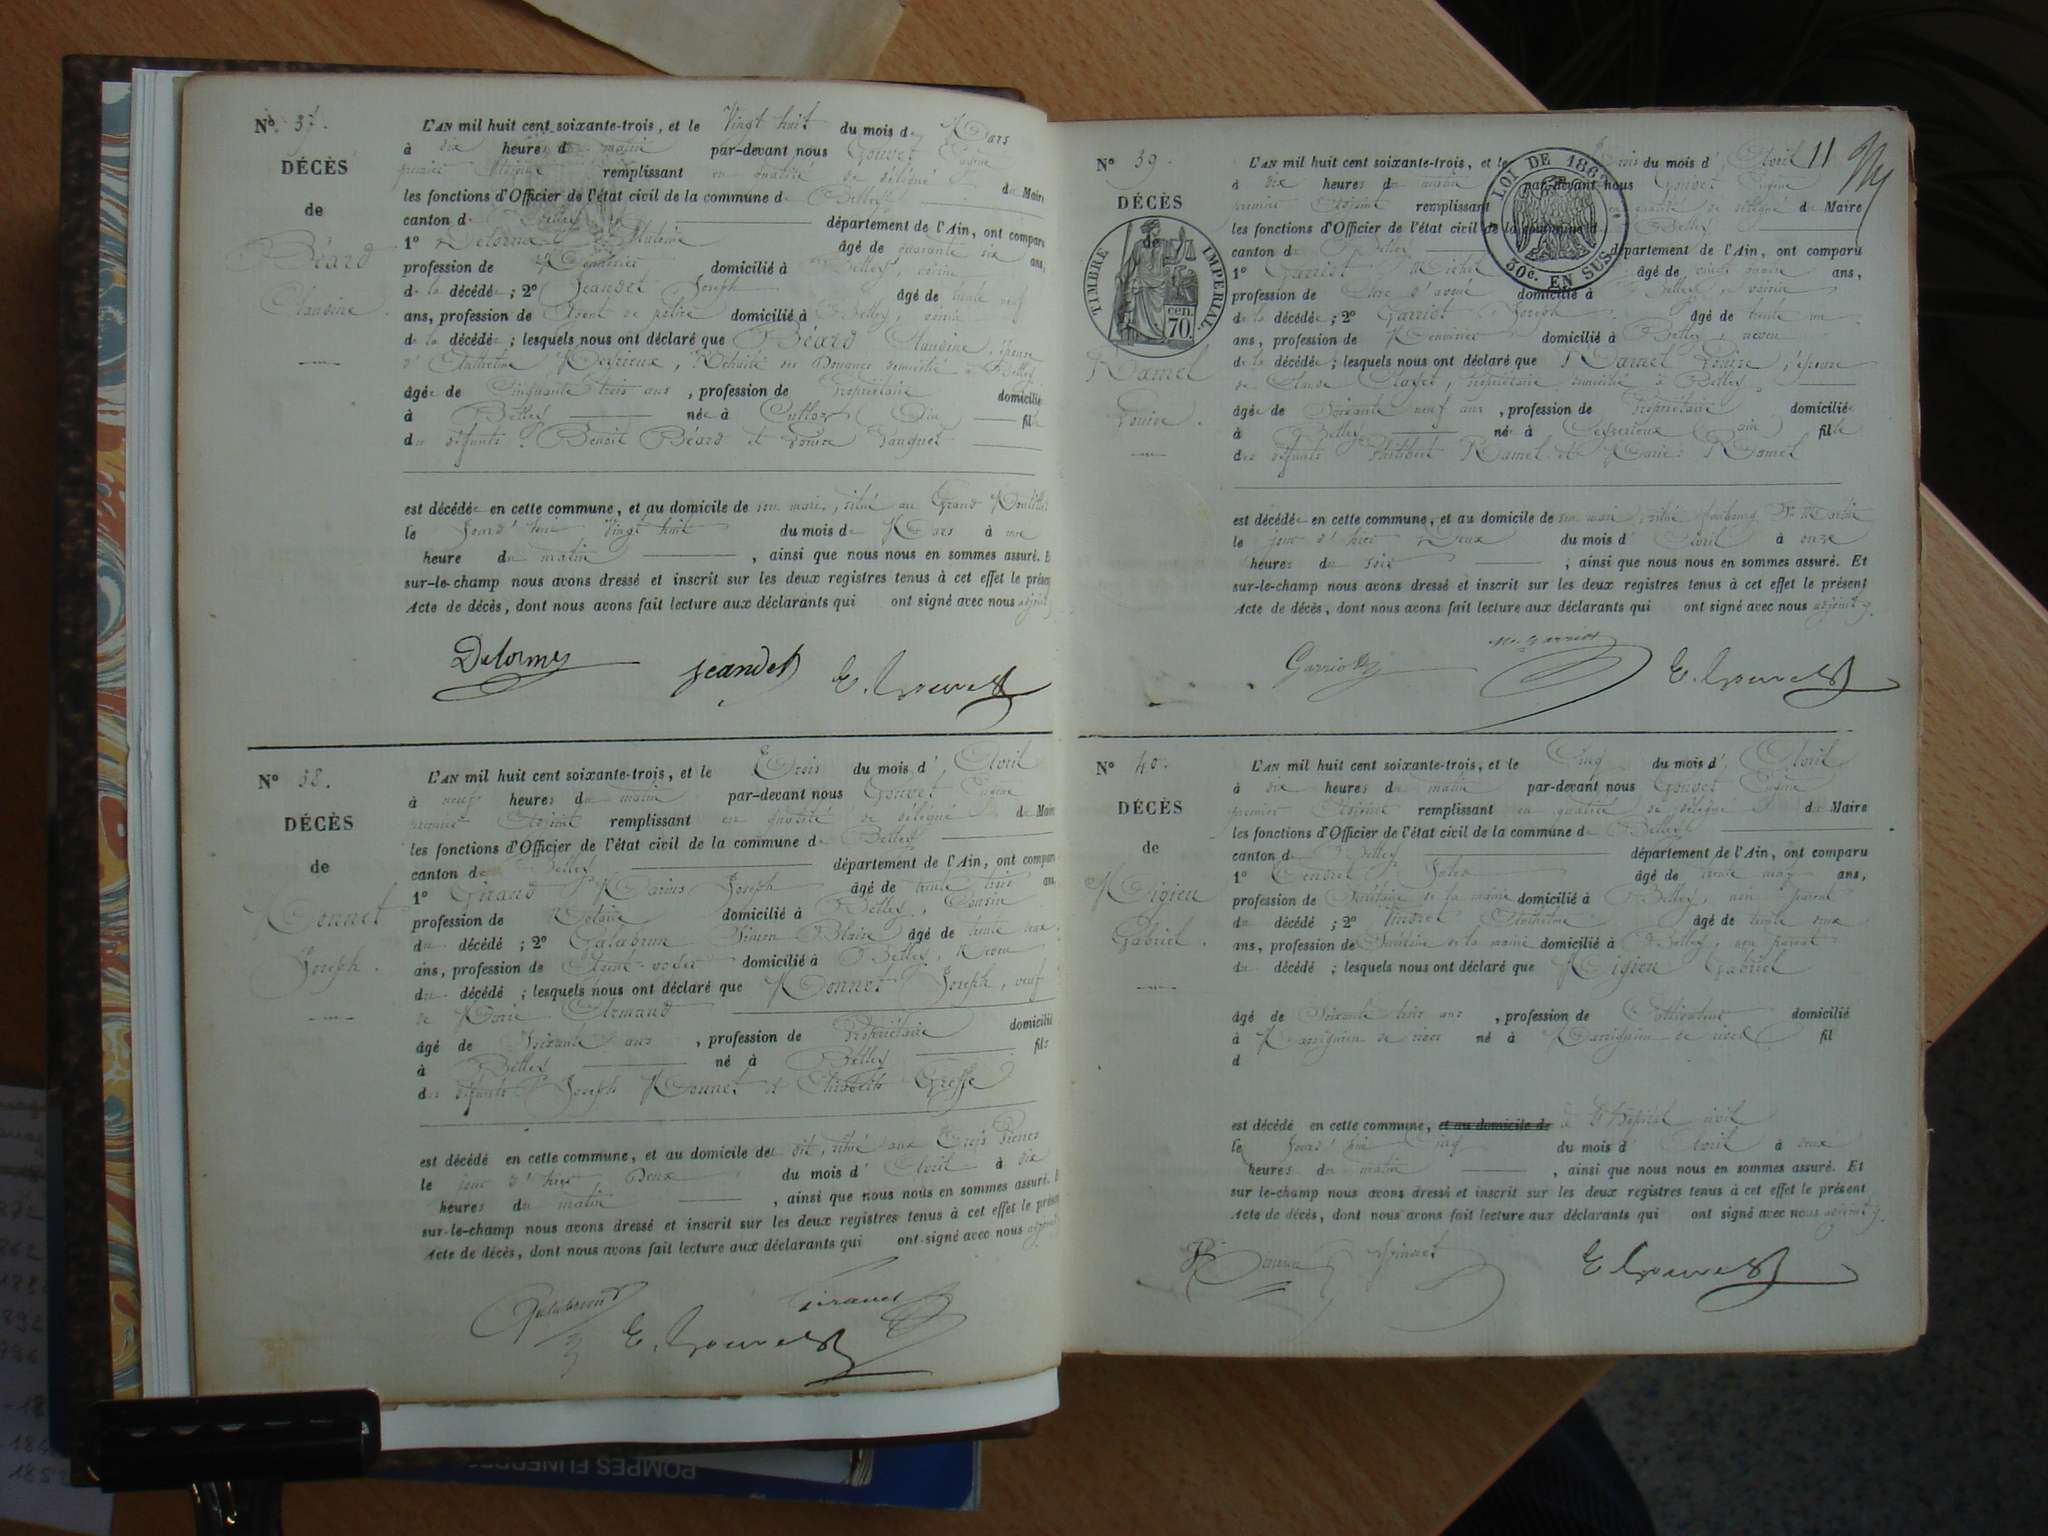 N° 37.
DÉCÈS
de
Béard
Claudine
L'AN mil huit cent soixante-trois, et le Vingt huit du mois de Mars
à dix heures du matin par-devant nous Gouvet Eugène
premier Adjoint remplissant en qualité de délégué du Maire
les fonctions d'Officier de l'état civil de la commune de Belley
canton de Belley département de l'Ain, ont comparu
1° Delorme Antoine âgé de quarante six ans,
profession de domicilié à Belley, voisin
de la décédée ; 2° Jeandet Joseph âgé de trente neuf
ans, profession de Agent de police domicilié à Belley, voisin
de la décédée ; lesquels nous ont déclaré que Béard Claudine, épouse
d'Anthelme Retraité des Douanes domicilié à Belley
âgée de Cinquante trois ans, profession de Propriétaire domiciliée
à Belley née à Culloz (Ain) fille
des défunts Benoit Béard et Louise
est décédée en cette commune, et au domicile de son mari, situé au Grand
le Jourd'hui Vingt huit du mois de Mars à une
heure du matin, ainsi que nous nous en sommes assuré. E
sur-le-champ nous avons dressé et inscrit sur les deux registres tenus à cet effet le présen
Acte de décès, dont nous avons fait lecture aux déclarants qui ont signé avec nous adjoint
Delorme Jeandet E. Gouvet
N° 38.
DÉCÈS
de
Monnet
Joseph.
L'AN mil huit cent soixante-trois, et le Trois du mois d'Avril
à neuf heures du matin par-devant nous Gouvet Eugène
premier Adjoint remplissant en qualité de délégué du Maire
les fonctions d'Officier de l'état civil de la commune de Belley
canton de Belley département de l'Ain, ont comparu
1° Giraud Marius Joseph âgé de trente trois an
profession de Notaire domicilié à Belley, Cousin
du décédé ; 2° Galabrun Simon Blaise âgé de trente
ans, profession de Agent-voyer domicilié à Belley, Neveu
du décédé ; lesquels nous ont déclaré que Monnet Joseph, veuf
de Marie Armand
âgé de Soixante ans, profession de Propriétaire domicilié
à Belley né à Belley fils
des défunts Joseph Monnet et Elisabeth Greffe
est décédé en cette commune, et au domicile de dit, situé aux Trois Pierres
le jour d'hier Deux du mois d'Avril à dix
heures du matin, ainsi que nous nous en sommes assuré. E
sur-le-champ nous avons dressé et inscrit sur les deux registres tenus à cet effet le présen
Acte de décès, dont nous avons fait lecture aux déclarants qui ont signé avec nous adjoint
Galabrun Giraud
E. Gouvet
11
N° 39.
DÉCÈS
de
TIMBRE IMPERIAL
70 cen.
LOI DE 1862
30c. EN SUS
Ramel
Louise.
L'AN mil huit cent soixante-trois, et le Trois du mois d'Avril
à dix heures du matin par-devant nous Gouvet Eugène
premier Adjoint remplissant en qualité de délégué du Maire
les fonctions d'Officier de l'état civil de la commune de Belley
canton de Belley département de l'Ain, ont comparu
1° Garriot Michel âgé de ans,
profession de Clerc d'avoué domicilié à Belley, voisin
de la décédée ; 2° Garriot Joseph âgé de trente un
ans, profession de Menuisier domicilié à Belley, neveu
de la décédée ; lesquels nous ont déclaré que Ramel Louise, épouse
de Claude propriétaire domicilié à Belley
âgée de Soixante neuf ans, profession de Propriétaire domiciliée
à Belley née à (Ain) fille
des défunts Philibert Ramel et Marie Ramel
est décédée en cette commune, et au domicile de son mari, situé faubourg St Martin
le jour d'hier Deux du mois d'Avril à onze
heures du soir, ainsi que nous nous en sommes assuré. Et
sur-le-champ nous avons dressé et inscrit sur les deux registres tenus à cet effet le présent
Acte de décès, dont nous avons fait lecture aux déclarants qui ont signé avec nous adjoint
Garriot M. Garriot E. Gouvet
N° 40.
DÉCÈS
de
Migieu
Gabriel.
L'AN mil huit cent soixante-trois, et le Cinq du mois d'Avril
à dix heures du matin par-devant nous Gouvet Eugène
premier Adjoint remplissant en qualité de délégué du Maire
les fonctions d'Officier de l'état civil de la commune de Belley
canton de Belley département de l'Ain, ont comparu
1° Jules âgé de ans,
profession de Secrétaire de la mairie domicilié à Belley, non parent
du décédé ; 2° Anthelme âgé de trente deux
ans, profession de Secrétaire de la mairie domicilié à Belley, non parent
du décédé ; lesquels nous ont déclaré que Migieu Gabriel
âgé de Soixante trois ans, profession de Cultivateur domicilié
à Massignieu de rives né à Massignieu de rives fil
d
est décédé en cette commune, et au domicile de à l'Hôpital civil
le Jourd'hui Cinq du mois d'Avril à deux
heures du matin, ainsi que nous nous en sommes assuré. Et
sur le-champ nous avons dressé et inscrit sur les deux registres tenus à cet effet le présent
Acte de décès, dont nous avons fait lecture aux déclarants qui ont signé avec nous adjoint
E Gouvet
POMPES FUNEBRES